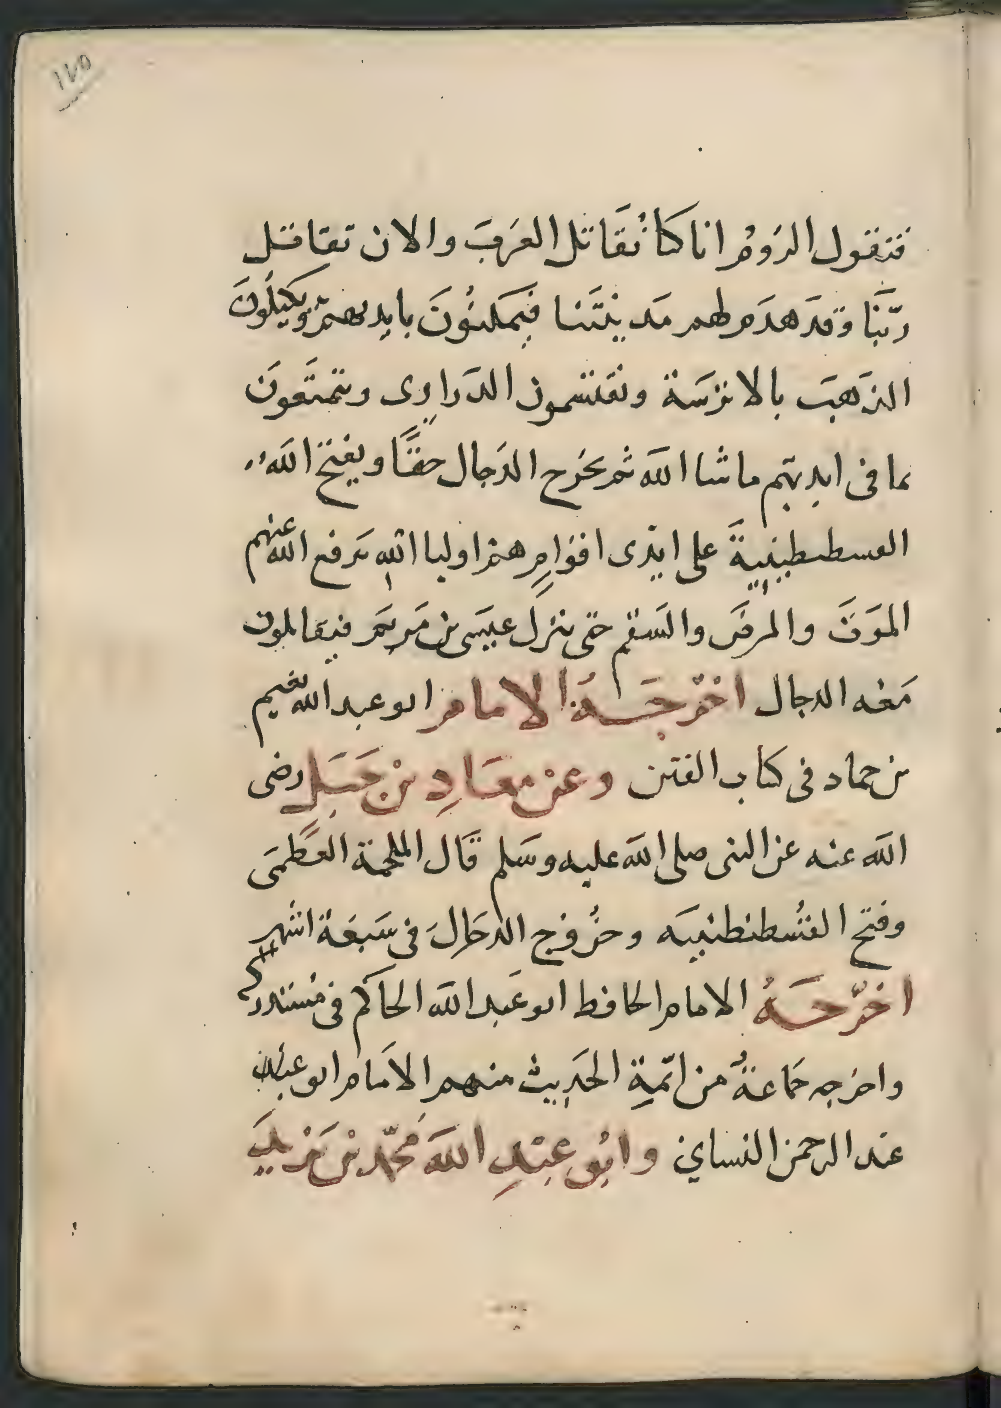 ١٢٥
فتقول الروم انا كنا نقاتل العرب والان نقاتل
ربنا وقد هدم لهم مدينتنا فيمكثون بايديهم ويكيلون
الذهب بالاترسة ويقتسمون الدراري ويتمتعون
بما في ايديهم ما شا الله ثم يخرج الدجال حقا ويفتح الله
القسطنطينية على ايدي اقوام هم اوليا الله يرفع الله عنهم
الموت والمرض والسقم حتى ينزل عيسى بن مريم فيقاتلون
معه الدجال اخرجه الامام ابو عبد الله نعيم
بن حماد في كتاب الفتن وعن معاذ بن جبل رضي
الله عنه عن النبي صلى الله عليه وسلم قال الملحمة العظمى
وفتح القسطنطينيه وخروج الدجال في سبعة اشهر
اخرجه الامام الحافظ ابو عبد الله الحاكم في مستدركه
واخرجه جماعة من ائمة الحديث منهم الامام ابو
عبد الرحمن النساي وابو عبد الله محمد بن يزيد